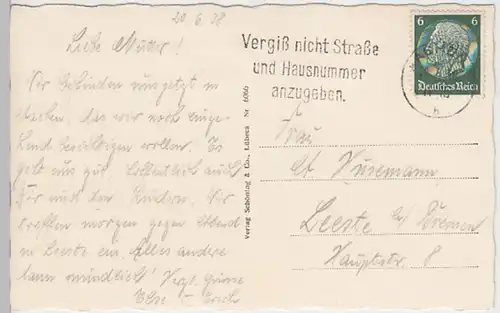 20.6.38
Liebe Mutter!
Wir befinden uns jetzt in
das wir noch einge-
hend besichtigen wollen. Es
geht uns gut. Hoffentlich auch
Dir und den Kindern. Wir
treffen morgen gegen Abend
in Leeste ein. Alles andere
dann mündlich! Herzl. Grüsse
Else u. Erich
Vergiß nicht Straße
und Hausnummer
anzugeben.
6 6
Deutsches Reich
Verlag Schöning & Co., Lübeck Nr. 6066
Frau
Leeste b/ Bremen
Hauptstr. 8